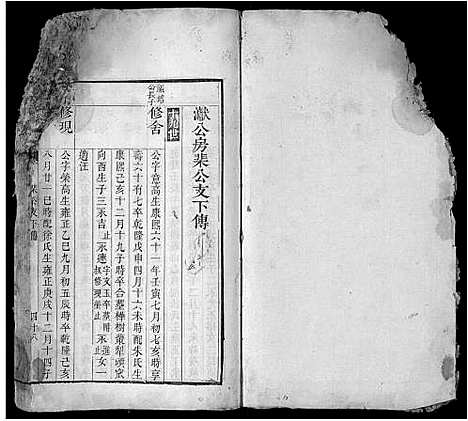 獻公房棐公支下傳
十九世
公長子
修舍
公字意高生康熙六十一年壬寅七月初七亥時享
壽六十有七卒乾隆戊申四月十六未時配朱氏生
康熙己亥十二月十九子時卒合墓樺樹叢犁頭㞧
向酉生子三永吉止永連字文玉卒墓附叔修現坐止永止進女一
適汪
修現
公字榮高生雍正乙巳九月初五辰時卒乾隆己亥
八月廿一巳時配徐氏生雍正庚戌十二月十四子
棐公支下傳
四十六